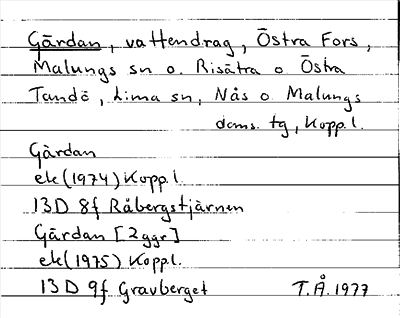 Gärdan, vattendrag, Östra Fors,
Malungs sn o. Risätra o Östra
Tandö, Lima sn, Nås o Malungs
doms. tg, Kopp. l.
Gärdan
ek (1974) Kopp. l.
13D 8f Råbergstjärnen
Gärdan [2 ggr]
ek (1975) Kopp l.
13D 9f Gravberget T.Å. 1977